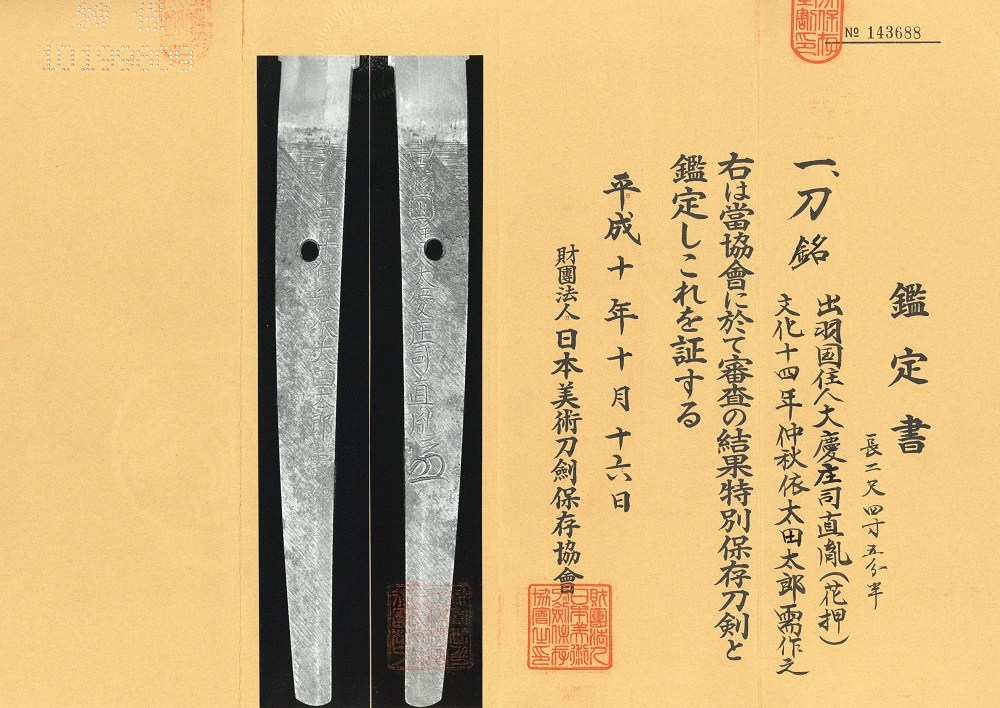 № 143688
鑑定書
長二尺四寸五分半
一、刀 銘
出羽国住人大慶庄司直胤（花押）
文化十四年仲秋依太田太郎需作之
右は當協會に於て審査の結果特別保存刀剣と
鑑定しこれを証する
平成十年十月十六日
財團法人 日本美術刀劍保存協會
財團法人
日本美術
刀劍保存
協會之印